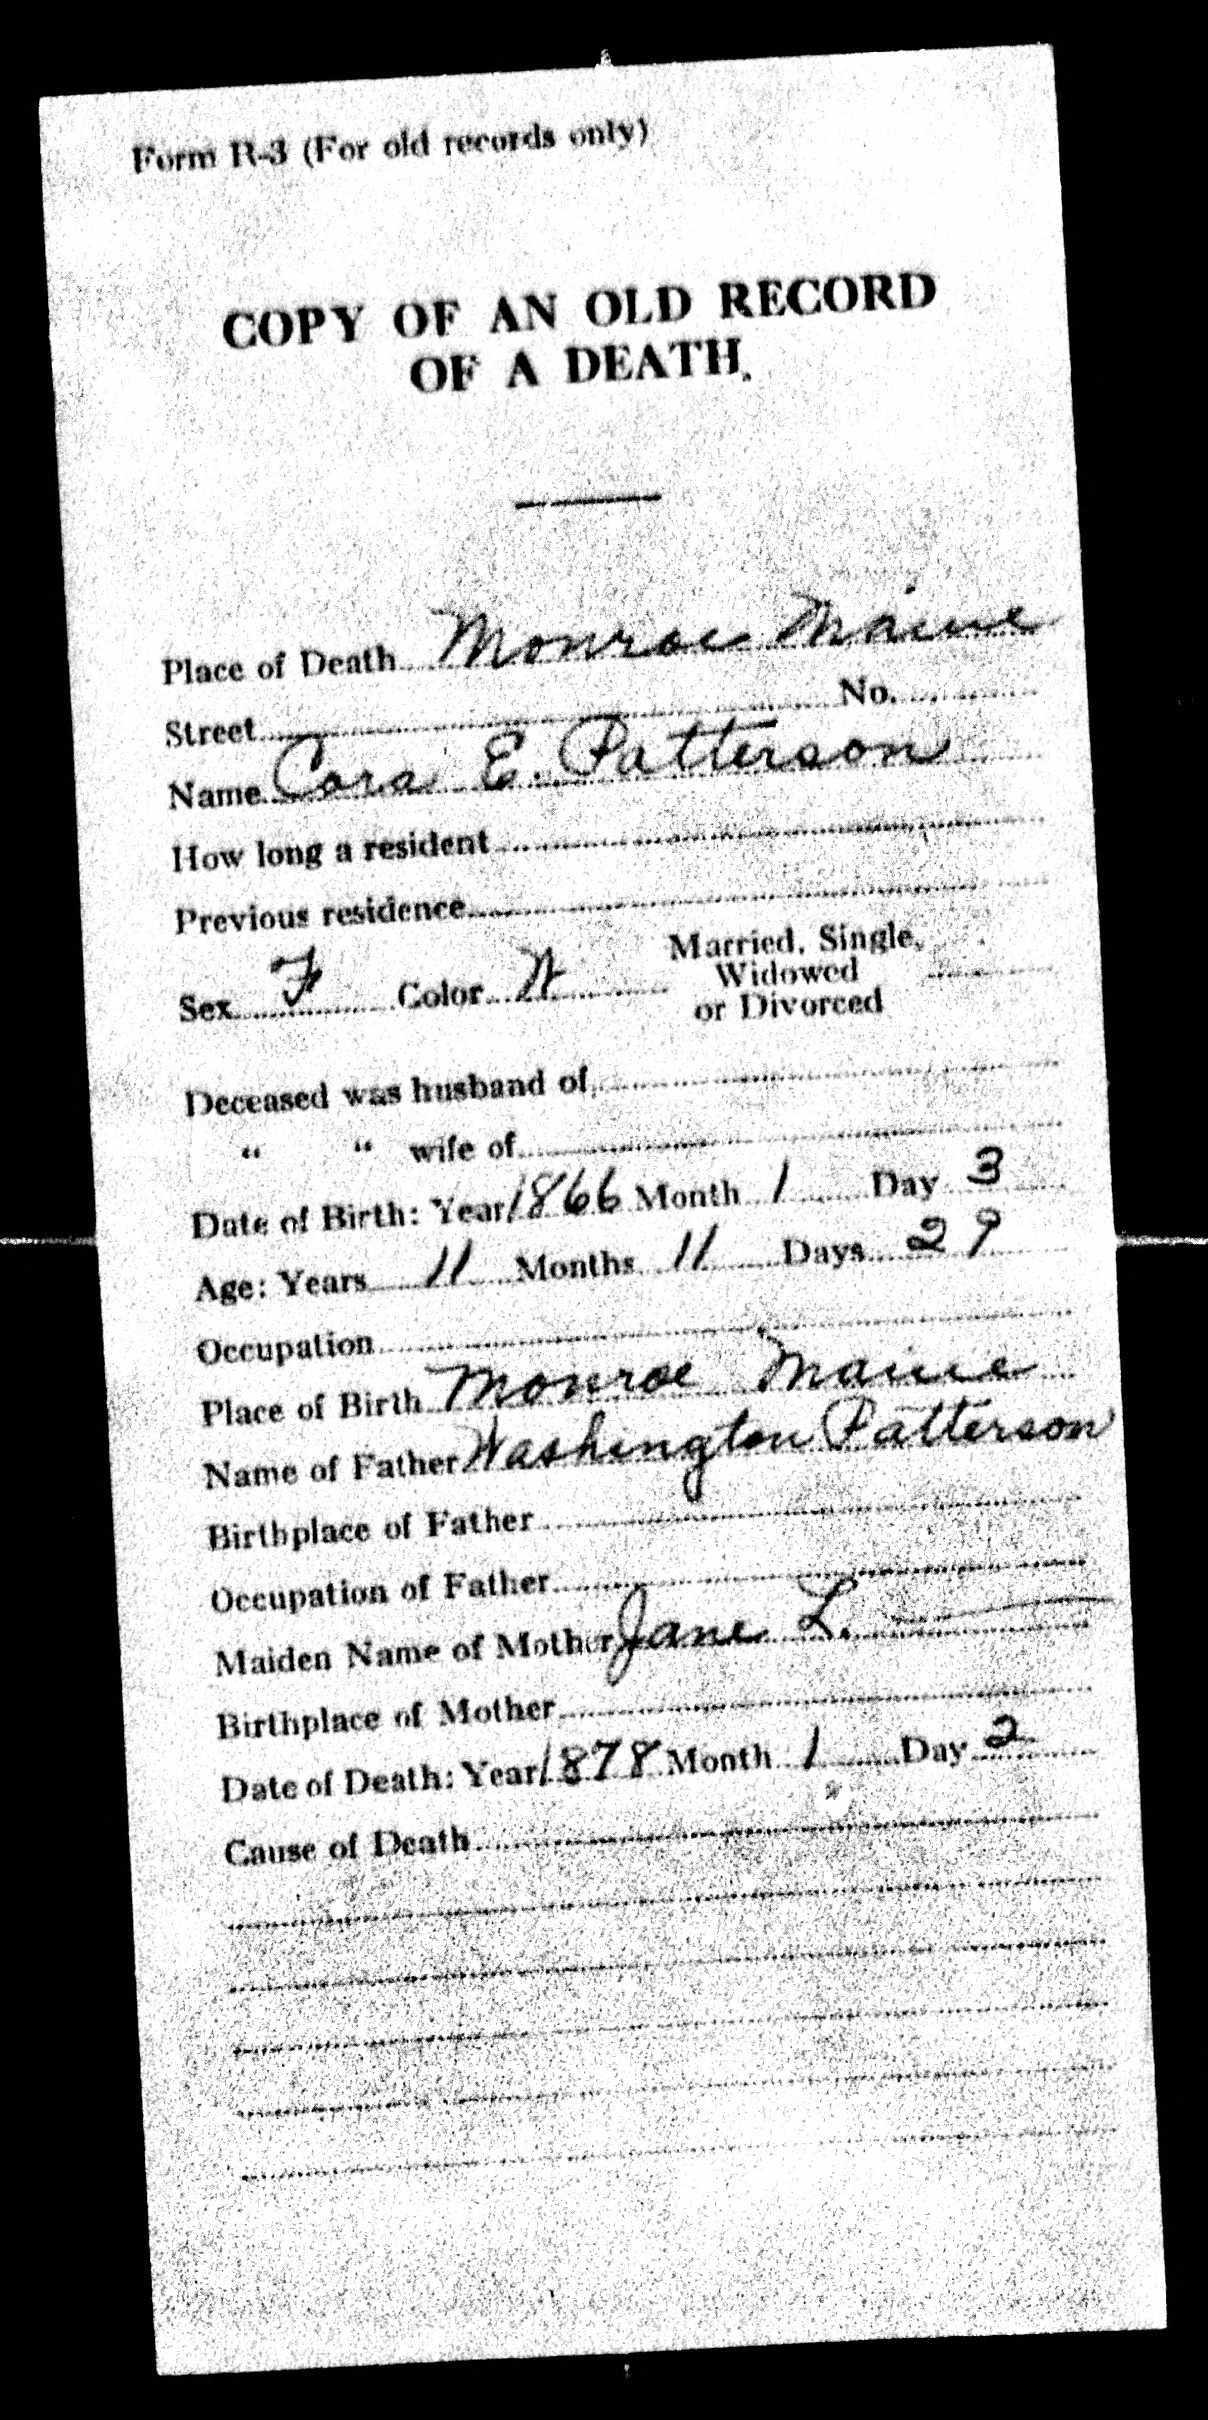 Form R-3 (For old records only)
COPY OF AN OLD RECORD
OF A DEATH.
Place of Death Monroe Maine
Street No.
Name Cora E. Patterson
How long a resident
Previous residence
Sex F Color W Married, Single, Widowed or Divorced
Deceased was husband of
" " wife of
Date of Birth: Year 1866 Month 1 Day 3
Age: Years 11 Months 11 Days 29
Occupation
Place of Birth Monroe Maine
Name of Father Washington Patterson
Birthplace of Father
Occupation of Father
Maiden Name of Mother Jane L. —
Birthplace of Mother
Date of Death: Year 1878 Month 1 Day 2
Cause of Death